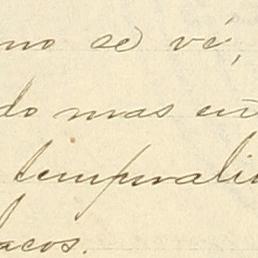 mo se vé,
do mas en
temporali
lacos.